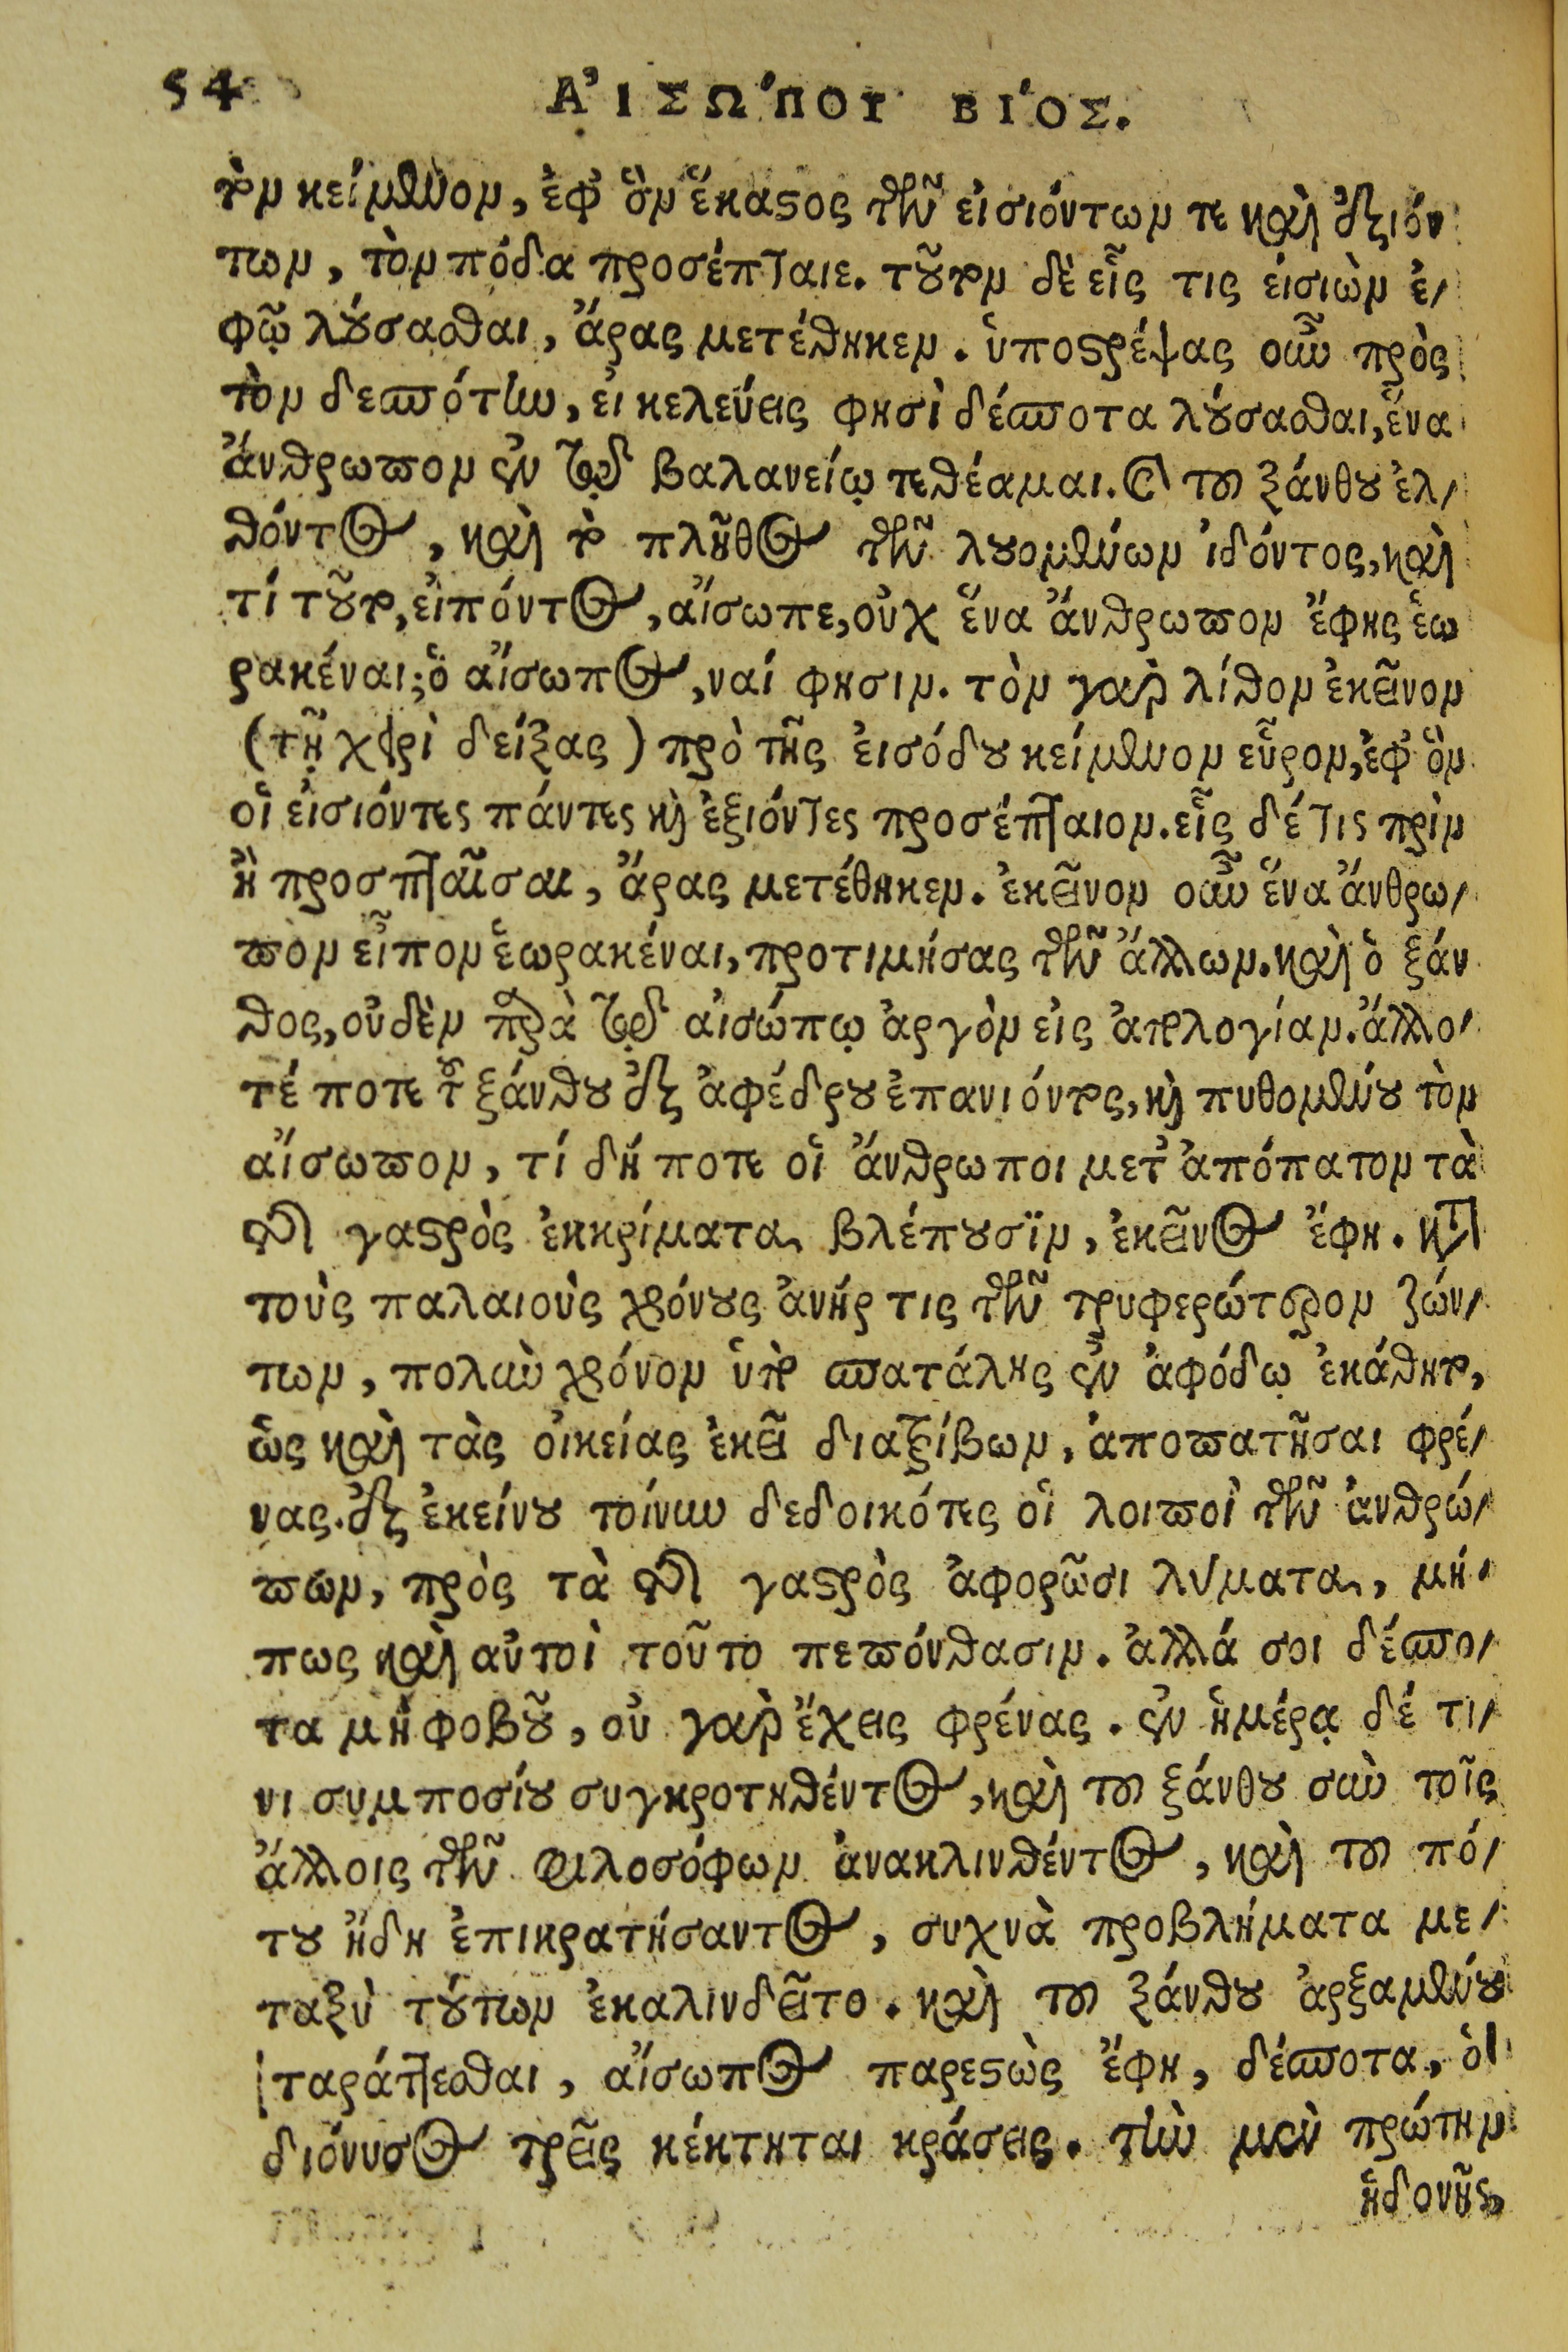 54 ΑἸΣΩΊΠΟΥ ΒΊΟΣ.
τον κείμενον, ἐφ' ὃν ἕκαστος τῶν εἰσιόντων τε καὶ ἐξιόν
των, τὸν πόδα προσέπταιε. τοῦτον δὲ εἷς τις εἰσιὼν ἐ-
φῷ λούσασθαι, ἄρας μετέθηκεν. ὑποστρέψας οὖν πρὸς
τὸν δεσπότην, εἰ κελεύεις φησὶ δέσποτα λούσασθαι, ἕνα
ἄνθρωπον ἐν τῷ βαλανείῳ τεθέαμαι. καὶ τοῦ ξάνθου ἐλ-
θόντος, καὶ τὸ πλῆθος τῶν λουομένων ἰδόντος, καὶ
τί τοῦτο, εἰπόντος, αἴσωπε, οὐχ ἕνα ἄνθρωπον ἔφης ἑω
ρακέναι; ὁ αἴσωπος, ναί φησιν. τὸν γὰρ λίθον ἐκεῖνον
(τῇ χειρὶ δείξας) πρὸ τῆς εἰσόδου κείμενον εὗρον, ἐφ' ὃν
οἱ εἰσιόντες πάντες καὶ ἐξιόντες προσέπταιον. εἷς δέ τις πρὶν
ἢ προσπταῖσαι, ἄρας μετέθηκεν. ἐκεῖνον οὖν ἕνα ἄνθρω-
πον εἶπον ἑωρακέναι, προτιμήσας τῶν ἄλλων. καὶ ὁ ξάν
θος, οὐδὲν παρὰ τῷ αἰσώπῳ ἀργὸν εἰς ἀπολογίαν. ἄλλο-
τέ ποτε τοῦ ξάνθου ἐξ ἀφέδρου ἐπανιόντος, καὶ πυθομένου τὸν
αἴσωπον, τί δή ποτε οἱ ἄνθρωποι μετ' ἀπόπατον τὰ
τῆς γαστρὸς ἐκκρίματα βλέπουσϊν, ἐκεῖνος ἔφη. κατὰ
τοὺς παλαιοὺς χρόνους ἀνήρ τις τῶν τρυφερώτερον ζών-
των, πολὺν χρόνον ὑπὸ σπατάλης ἐν ἀφόδῳ ἐκάθητο,
ὡς καὶ τὰς οἰκείας ἐκεῖ διατρίβων, ἀποπατῆσαι φρέ-
νας. ἐξ ἐκείνου τοίνυν δεδοικότες οἱ λοιποὶ τῶν ἀνθρώ-
πων, πρὸς τὰ τῆς γαστρὸς ἀφορῶσι λύματα, μή-
πως καὶ αὐτοὶ τοῦτο πεπόνθασιν. ἀλλά σοι δέσπο-
τα μὴ φοβοῦ, οὐ γὰρ ἔχεις φρένας. ἐν ἡμέρᾳ δέ τι-
νι συμποσίου συγκροτηθέντος, καὶ τοῦ ξάνθου σὺν τοῖς
ἄλλοις τῶν φιλοσόφων ἀνακλινθέντος, καὶ τοῦ πό-
του ἤδη ἐπικρατήσαντος, συχνὰ προβλήματα με-
ταξὺ τούτων ἐκαλινδεῖτο. καὶ τοῦ ξάνθου ἀρξαμένου
ταράττεσθαι, αἴσωπος παρεστὼς ἔφη, δέσποτα, ὁ
διόνυσος τρεῖς κέκτηται κράσεις. τὴν μὲν πρώτην
ἡδονῆς,